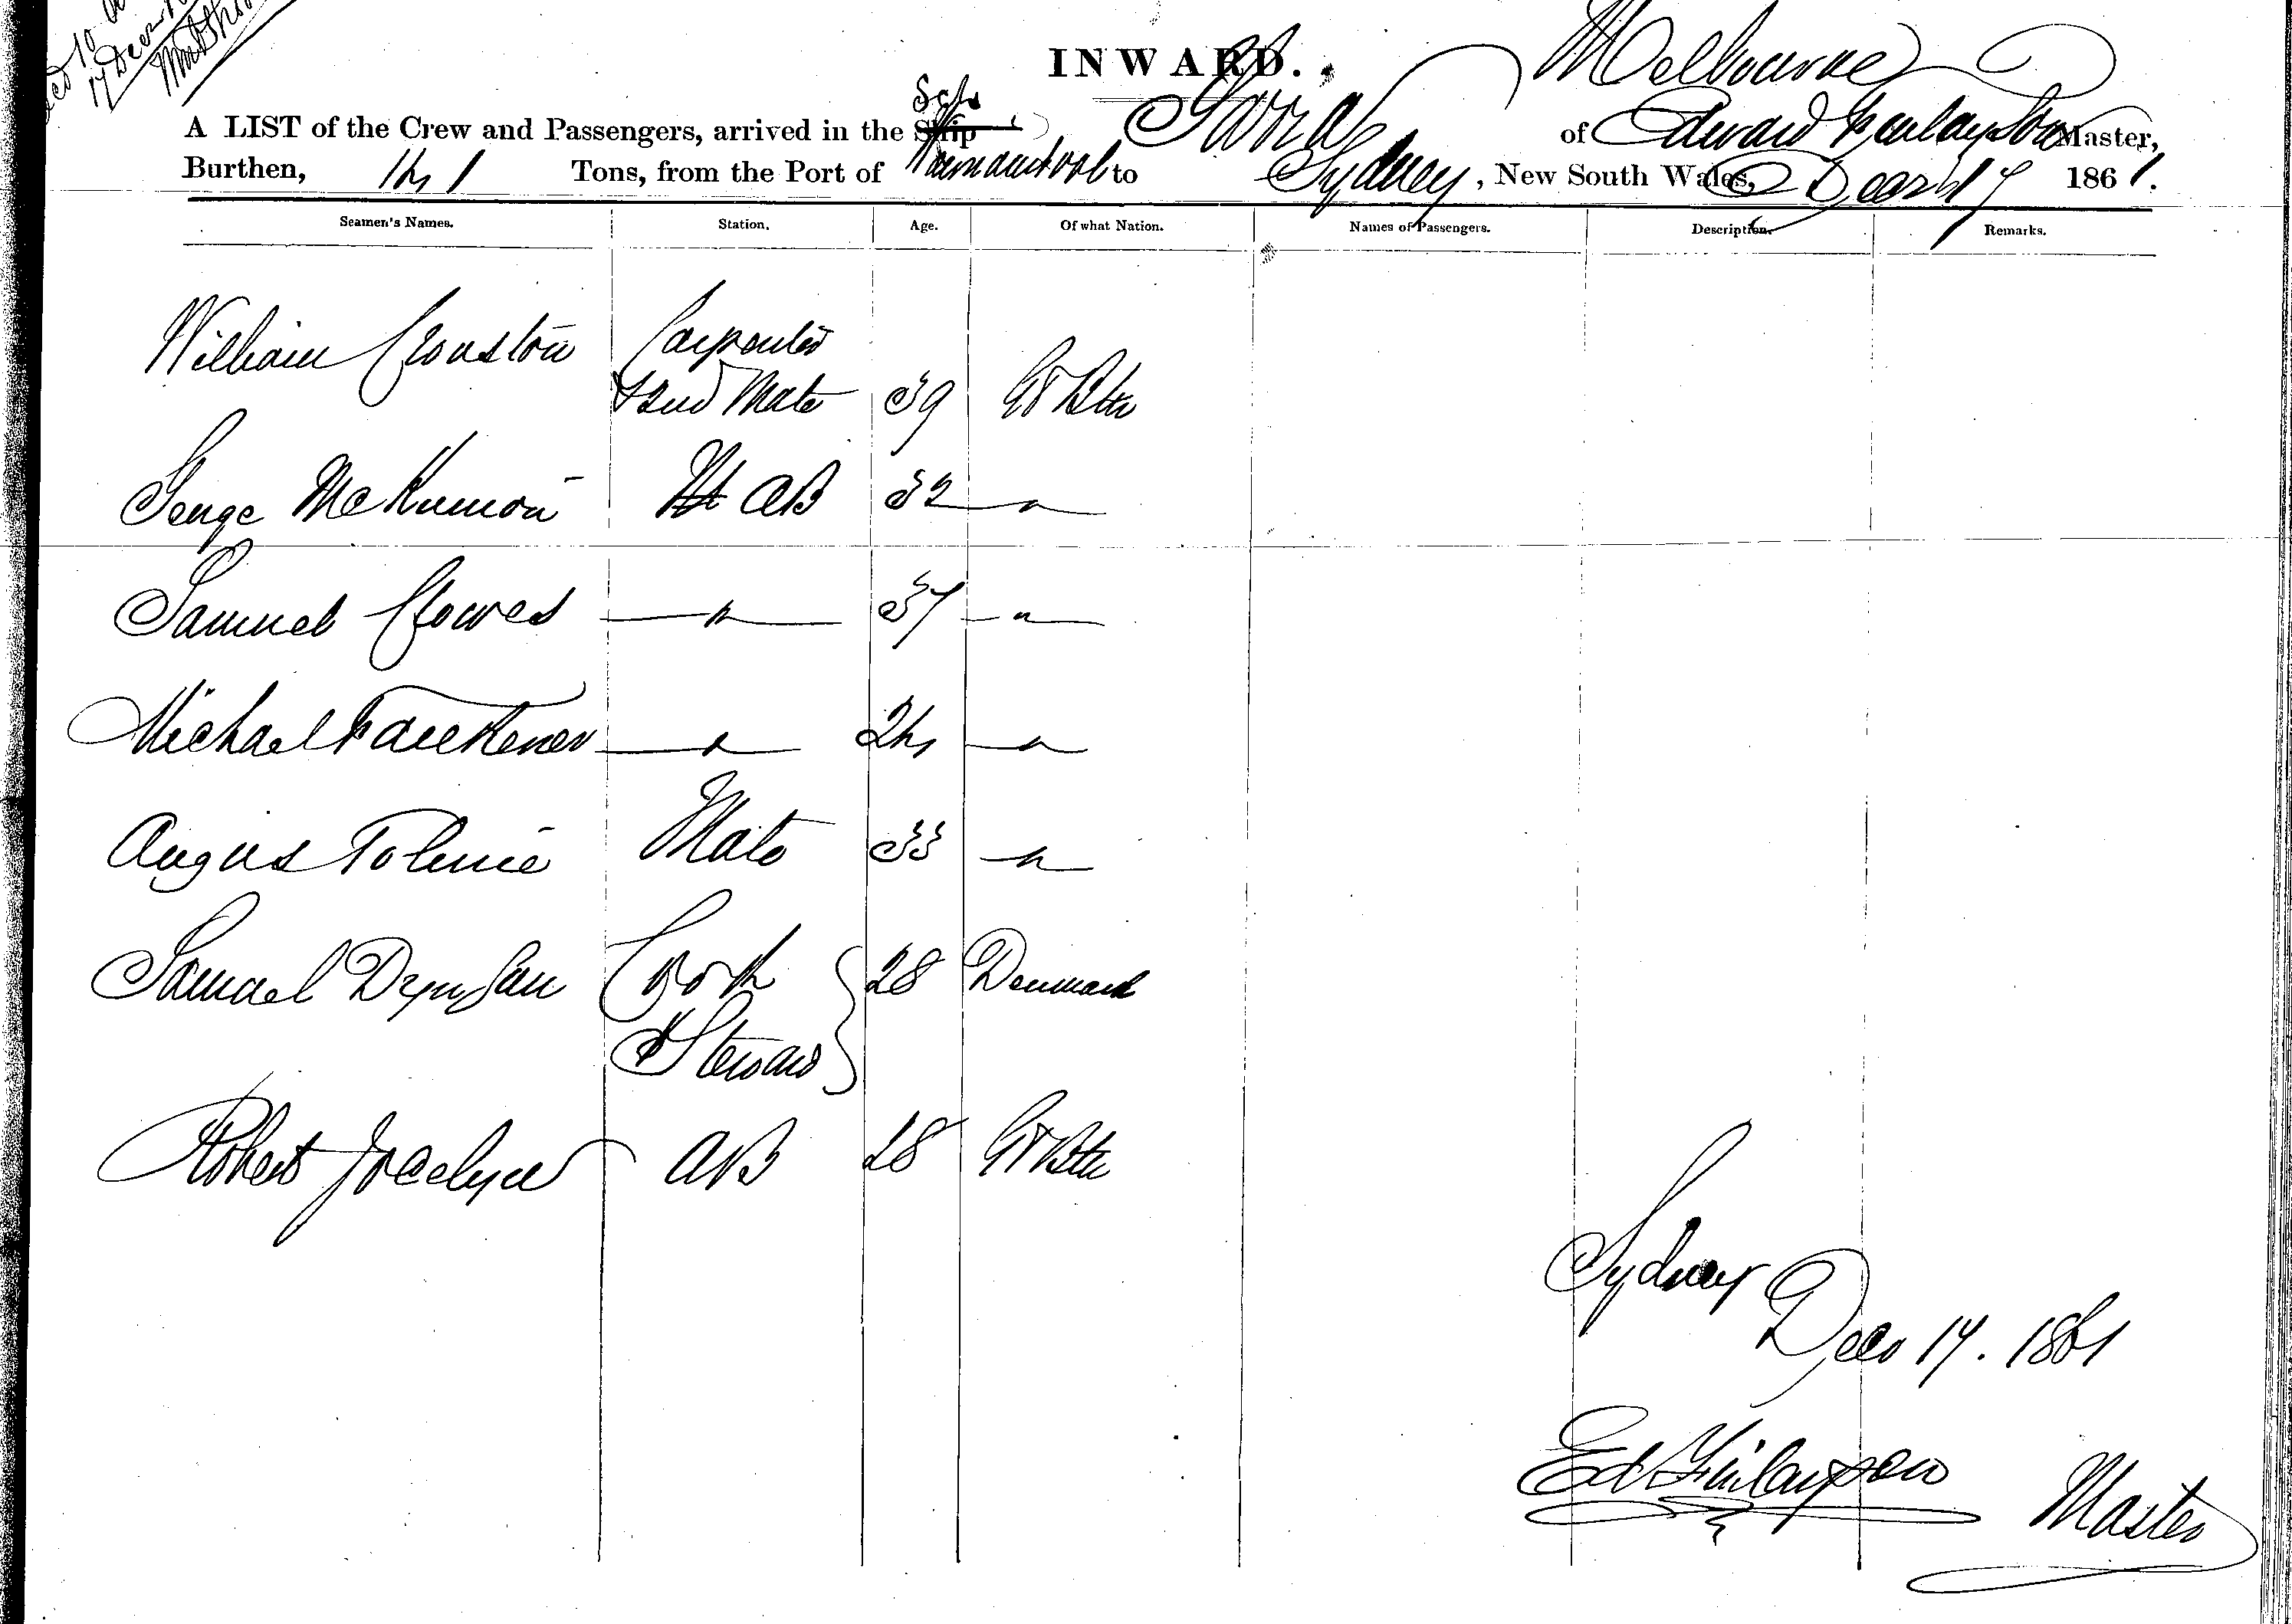 17 Decr
INWARD.
Melbourne
A LIST of the Crew and Passengers, arrived in the Ship Schr of Edward Finlayson Master,
Burthen, 141 Tons, from the Port of to Sydney, New South Wales, Decr 17 1861.
Seamen's Names. Station. Age. Of what Nation. Names of Passengers. Description. Remarks.
William Cronston Carpenter
& 2nd Mate 39 Gt Btn
George McKinnon AB 32 "
Samuel Clowes " 37 "
Michael Faulkener " 24 "
Angus Tolmie Mate 33 "
Samuel Cook 28 Denmark
& Steward
Robert Jocelyn AB 28 Gt Btn
Sydney
Decr 17. 1861
Ed Finlayson
Master